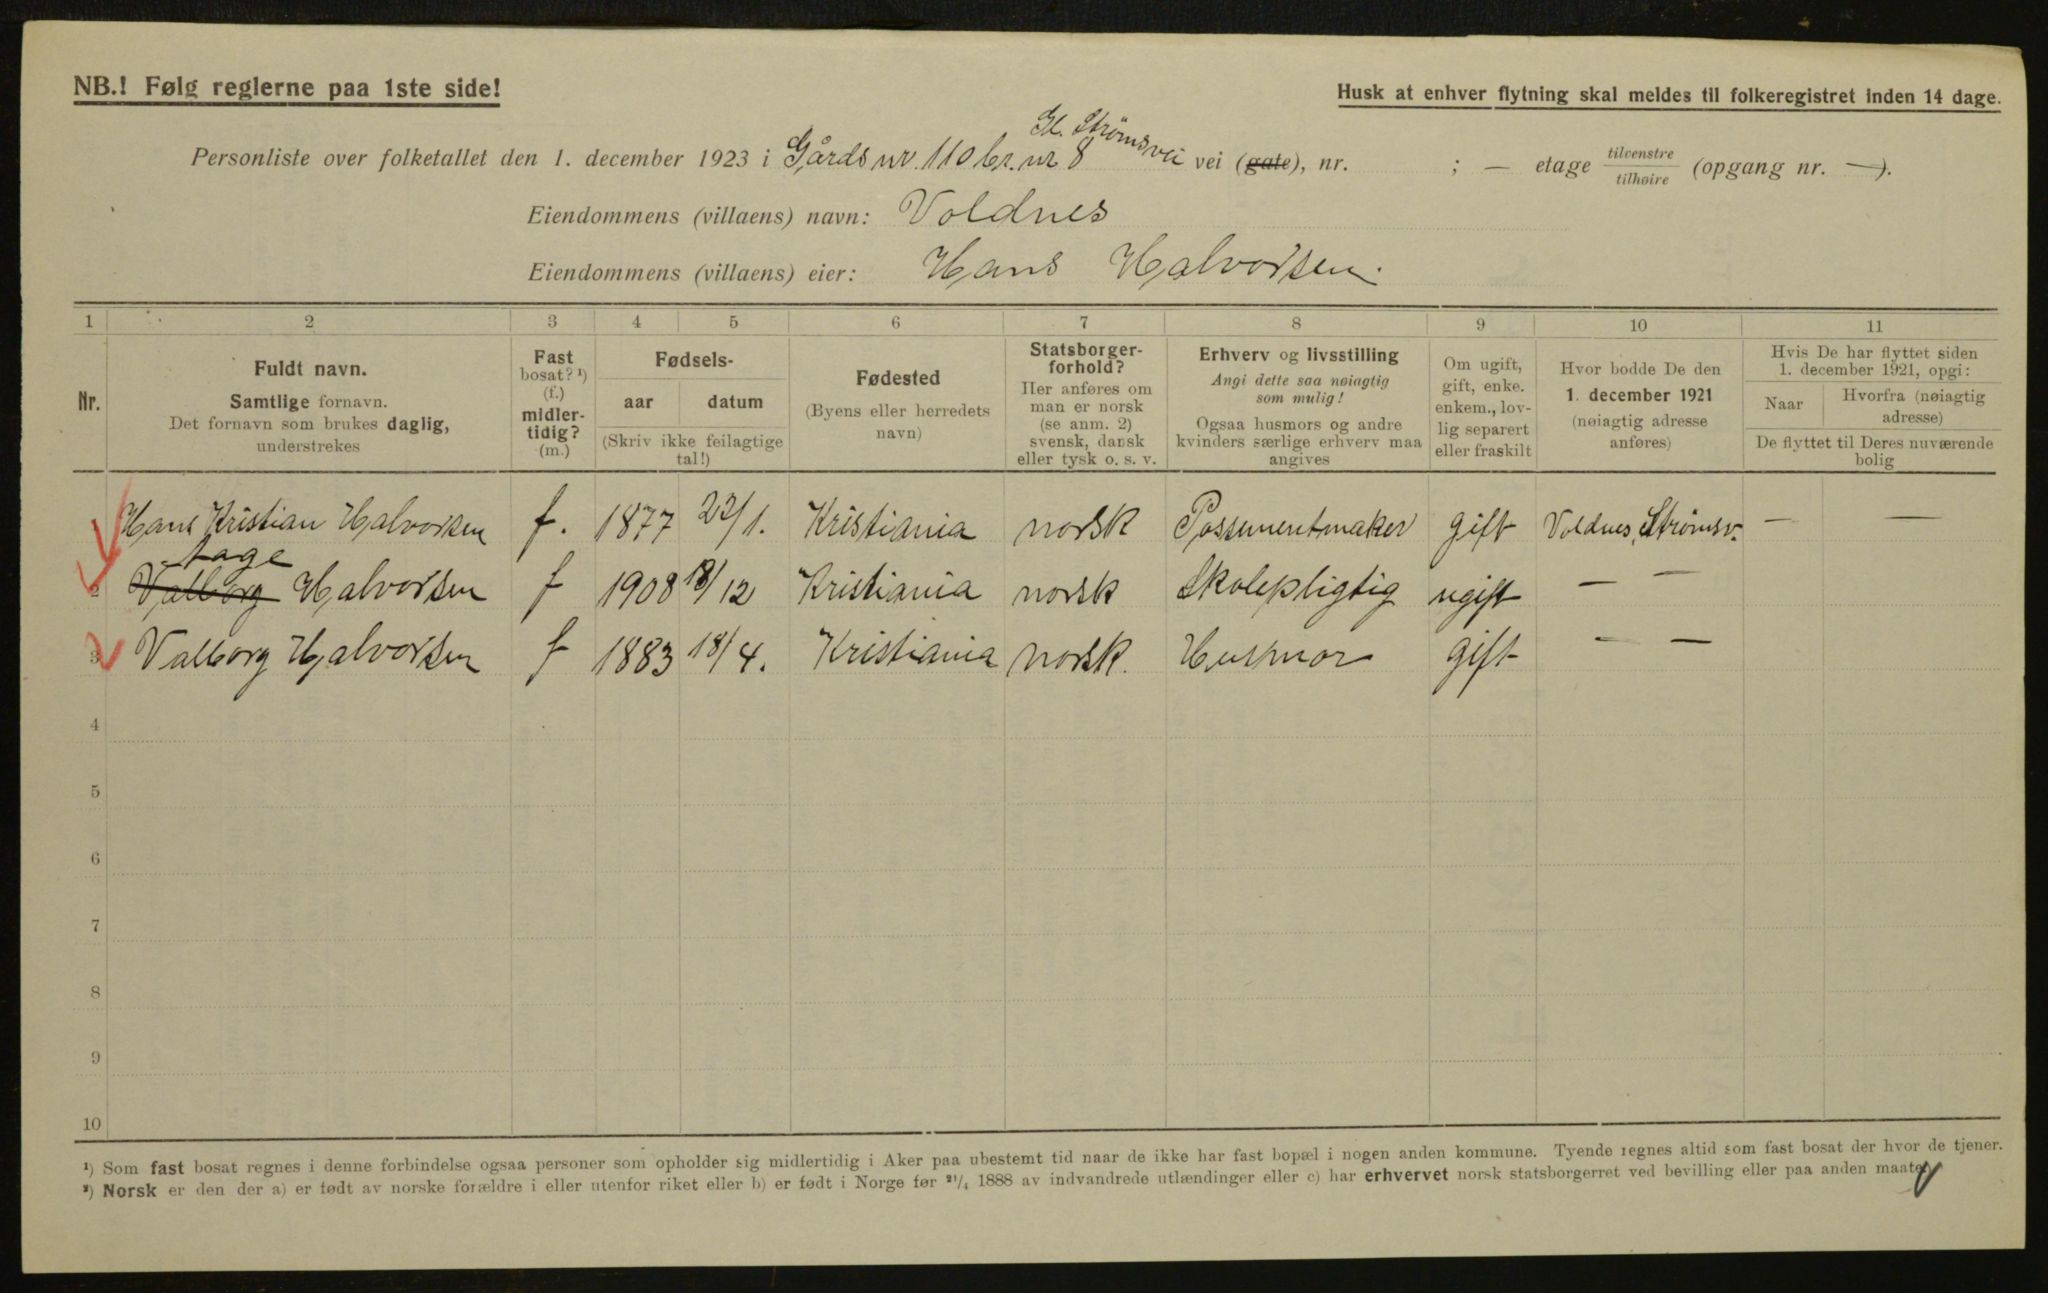 NB.! Følg reglerne paa 1ste side!
Husk at enhver flytning skal meldes til folkeregistret inden 14 dage.
Gl. Strömsvei
Personliste over folketallet den 1. december 1923 i Gårds nr. 110 br. nr 8 vei (gate), nr. ; — etage tilvenstre tilhøire (opgang nr. —).
Eiendommens (villaens) navn: Voldnes
Eiendommens (villaens) eier: Hans Halvorsen.
1 2 3 4 5 6 7 8 9 10 11
Nr.
Fuldt navn.
Samtlige fornavn.
Det fornavn som brukes daglig,
understrekes
Fast
bosat? ¹)
(f.)
midler-
tidig?
(m.)
Fødsels-
aar datum
(Skriv ikke feilagtige
tal!)
Fødested
(Byens eller herredets
navn)
Statsborger-
forhold?
Her anføres om
man er norsk
(se anm. 2)
svensk, dansk
eller tysk o. s. v.
Erhverv og livsstilling
Angi dette saa nøiagtig
som mulig!
Ogsaa husmors og andre
kvinders særlige erhverv maa
angives
Om ugift,
gift, enke.
enkem., lov-
lig separert
eller fraskilt
Hvor bodde De den
1. december 1921
(nøiagtig adresse
anføres)
Hvis De har flyttet siden
1. december 1921, opgi:
Naar
Hvorfra (nøiagtig
adresse)
De flyttet til Deres nuværende
bolig
Hans Kristian Halvorsen f. 1877 23/1. Kristiania norsk Possementmaker gift Voldnes, Strömsv. — —
Aage
2 Valborg Halvorsen f 1908 18/12 Kristiania norsk Skolepligtig ugift — —
3 Valborg Halvorsen f 1883 18/4. Kristiania norsk. Husmor gift — —
4
5
6
7
8
9
10
¹) Som fast bosat regnes i denne forbindelse ogsaa personer som opholder sig midlertidig i Aker paa ubestemt tid naar de ikke har fast bopæl i nogen anden kommune. Tyende regnes altid som fast bosat der hvor de tjener.
²) Norsk er den der a) er født av norske forældre i eller utenfor riket eller b) er født i Norge før ²¹/₄ 1888 av indvandrede utlændinger eller c) har erhvervet norsk statsborgerret ved bevilling eller paa anden maate.